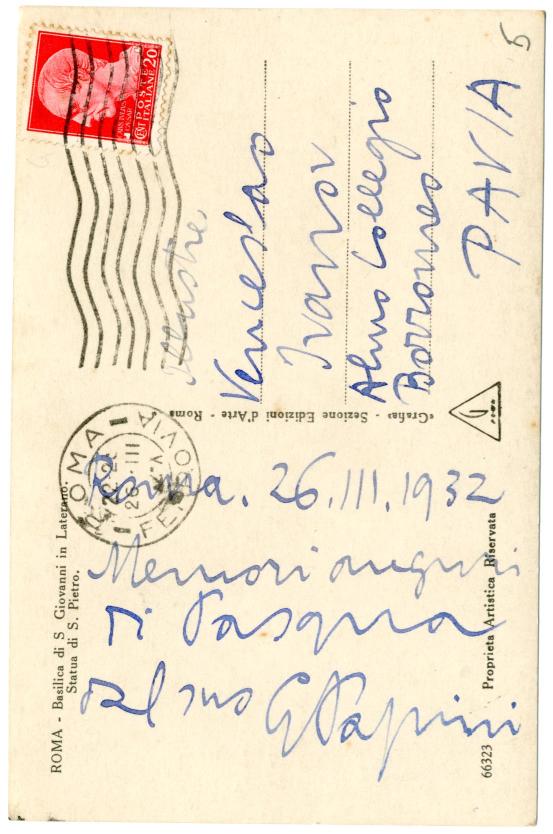 ROMA - Basilica di S. Giovanni in Laterano.
Statua di S. Pietro.
Roma. 26.III.1932
Memori auguri
di Pasqua
dal suo
G Papini
66323
Proprietà Artistica Riservata
«Grafia» - Sezione Edizioni d'Arte - Roma
ROMA
26 III
FERROVIA
POSTE
ITALIANE
CENT 20
Illustre
Venceslao
Ivanov
Almo Collegio
Borromeo
PAVIA
5